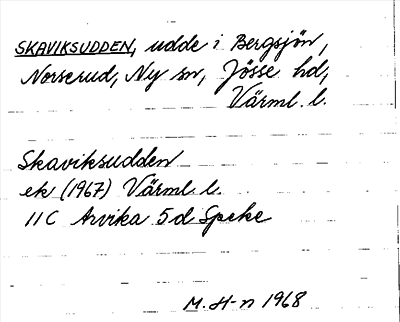 SKAVIKSUDDEN, udde i Bergsjön,
Norserud, Ny sn, Jösse hd,
Värml. l.
Skaviksudden
ek (1967) Värml l.
11C Arvika 5d Speke
M. H-n 1968